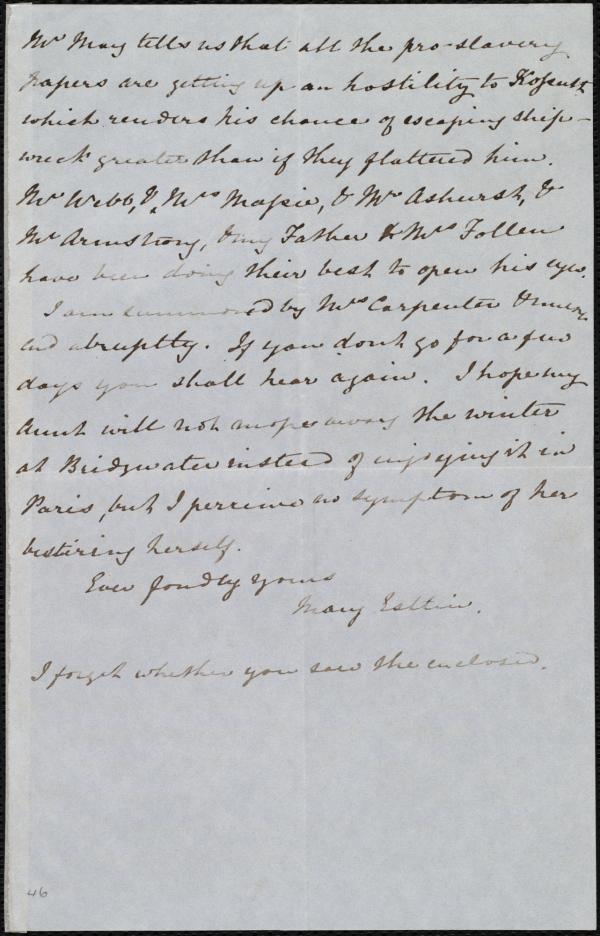 Mr May tells us that all the pro-slavery
papers are getting up an hostility to Kossuth
which renders his chance of escaping ship-
wreck greater than if they flattered him.
Mr Webb, & Mrs Massie, & Mr Ashurst, &
Mr Armstrong, & my Father & Mrs Follen
have been doing their best to open his eyes.
I am summoned by Mrs Carpenter & must
end abruptly. If you don't go for a few
days you shall hear again. I hope my
Aunt will not mope away the winter
at Bridgwater instead of enjoying it in
Paris, but I perceive no symptom of her
bestiring herself.
Ever fondly yours
Mary Estlin.
I forget whether you saw the enclosed.
46